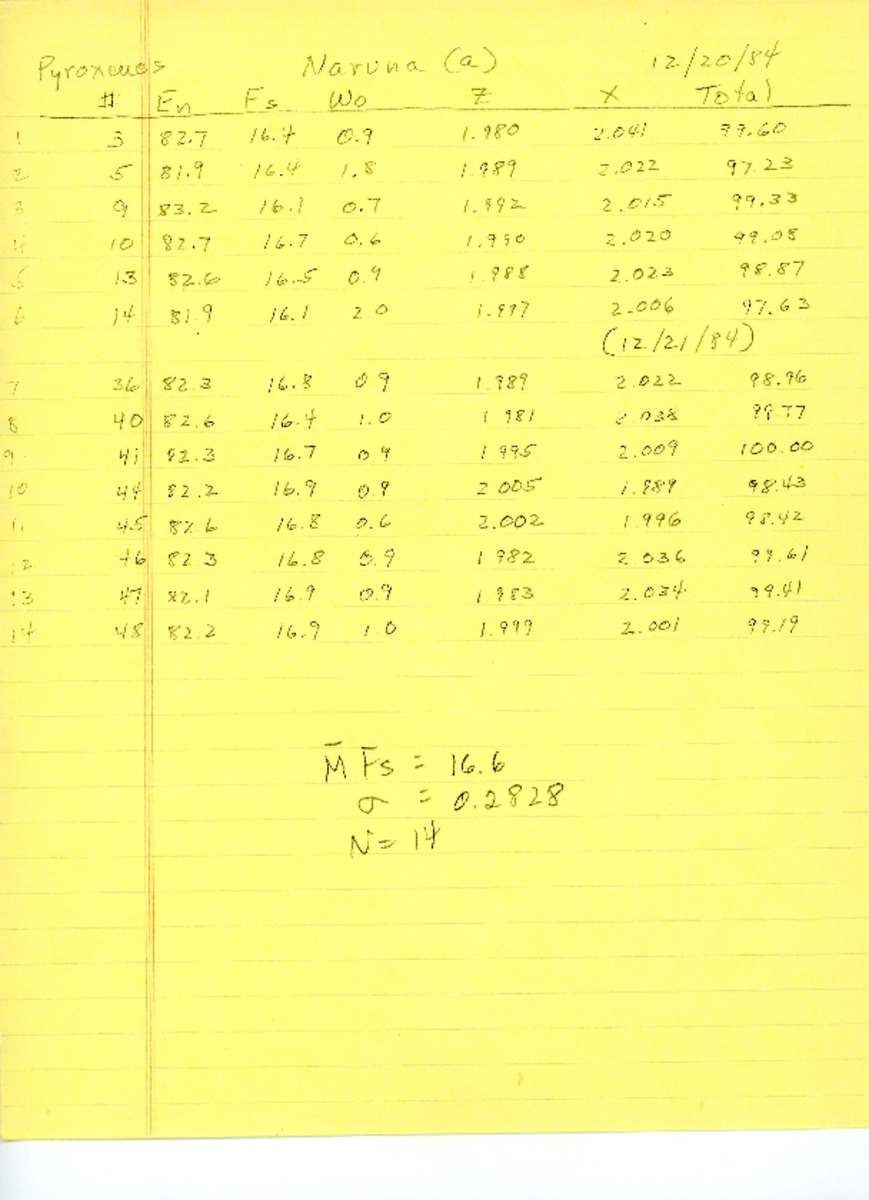 Pyroxenes Naruna (a) 12/20/84
# En Fs Wo Z X Total
1 3 82.7 16.4 0.9 1.980 2.041 99.60
2 5 81.9 16.4 1.8 1.989 2.022 97.23
3 9 83.2 16.1 0.7 1.992 2.015 99.33
4 10 82.7 16.7 0.6 1.990 2.020 99.08
5 13 82.6 16.5 0.9 1.988 2.023 98.87
6 14 81.9 16.1 2.0 1.997 2.006 97.63
(12/21/84)
7 36 82.3 16.8 0.9 1.989 2.022 98.96
8 40 82.6 16.4 1.0 1.981 2.038 99.77
9 41 82.3 16.7 0.9 1.995 2.009 100.00
10 44 82.2 16.9 0.9 2.005 1.989 98.43
11 45 82.6 16.8 0.6 2.002 1.996 98.42
12 46 82.3 16.8 0.9 1.982 2.036 99.61
13 47 82.1 16.9 0.9 1.983 2.034 99.41
14 48 82.2 16.9 1.0 1.999 2.001 99.19
M̄ Fs = 16.6
σ = 0.2828
N = 14